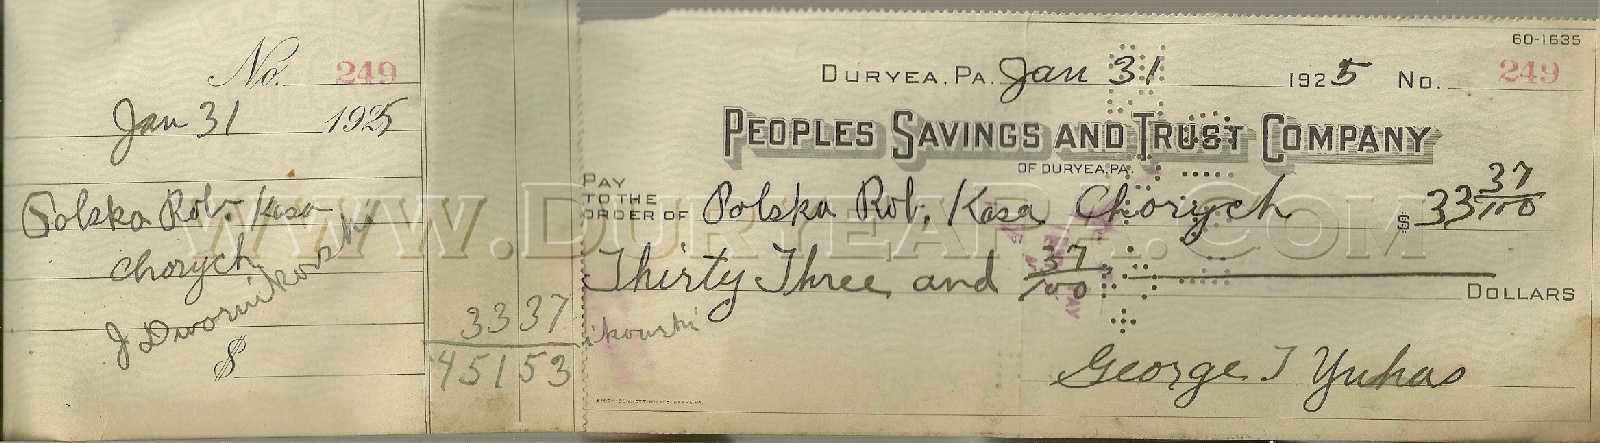 No. 249
Jan 31 1925
Polska Rob. Kasa
Chorych
J Dwornikowski
$
33 37
451 53
60-1635
DURYEA, PA. Jan 31 1925 No. 249
PEOPLES SAVINGS AND TRUST COMPANY
OF DURYEA, PA.
PAY
TO THE
ORDER OF Polska Rob. Kasa Chorych $33 37/100
Thirty Three and 37/100 DOLLARS
ikowski
George J Yuhas
WWW.DURYEAPA.COM